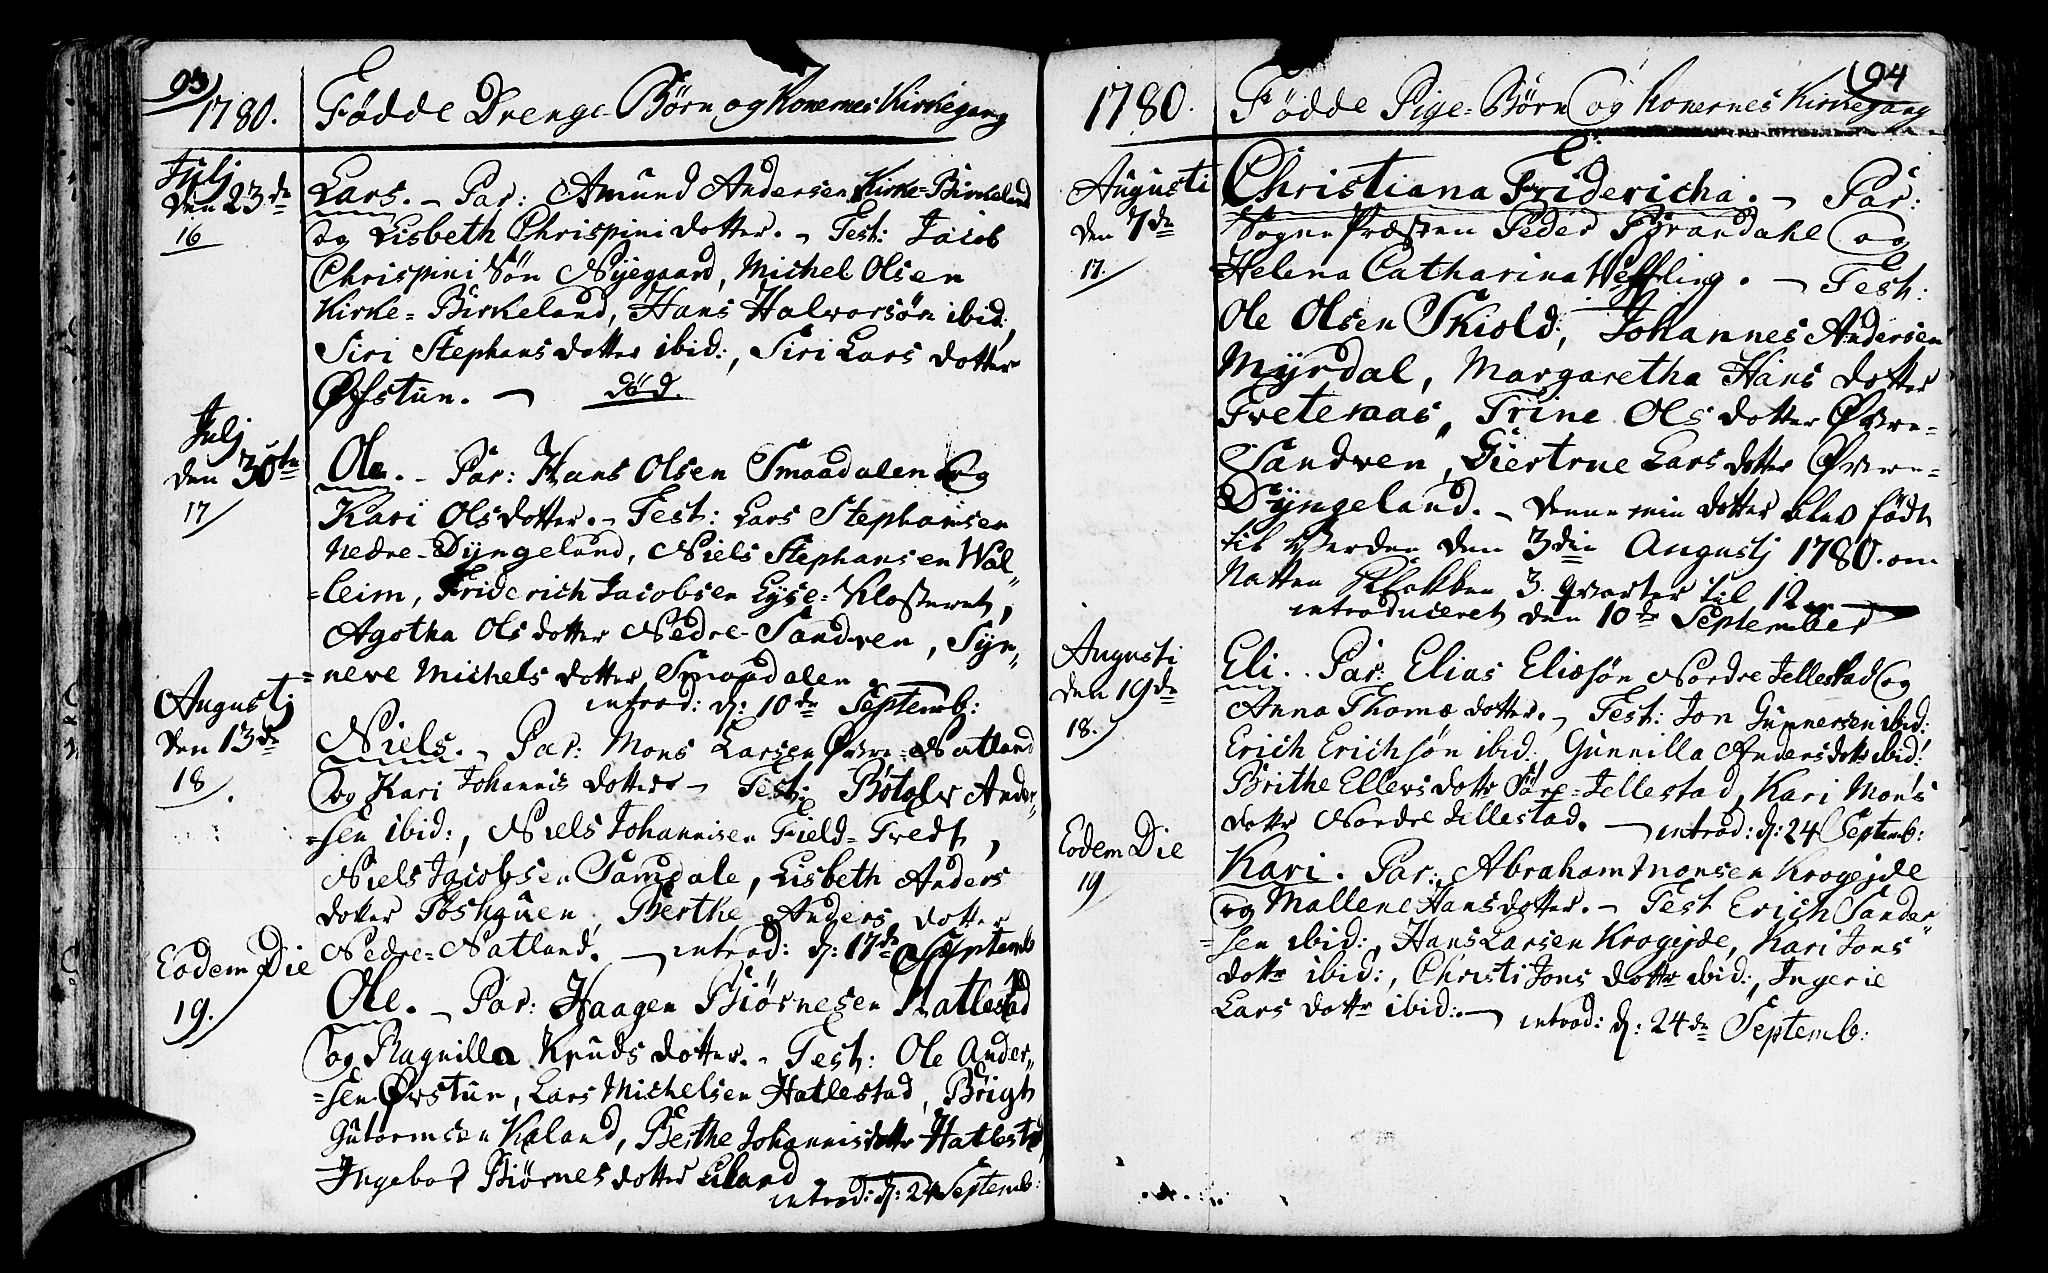 93
1780. Fødde Drenge-Børn og Konernes Kirkegang
Julj
den 23de
16
Lars. - Par: Amund Andersen Kirke-Birkeland
og Lisbeth Chrispini dotter. - Test: Jacob
Chrispini Søn Nÿegaard, Michel Olsen
Kirke-Birkeland, Hans Halvorsøn ibid:,
Siri Stephans dotter ibid:, Siri Lars dotter
Øfstun. - død.
Julj
den 30te
17
Ole. - Par: Hans Olsen Smaadalen og
Kari Olsdotter. - Test: Lars Stephansen
Nedre-Dÿngeland, Niels Stephansen Wal
=leim, Friderich Jacobsen Lyse-Klosteret,
Agotha Olsdotter Nedre-Sandven, Sÿn
=neve Michels dotter Smaadalen
introd: d: 10de Septemb:
Augustj
den 13de
18
Niels. - Par: Mons Larsen Øvre-Natland
og Kari Johannis dotter - Test: Botolv Ander
=sen ibid:, Niels Johannisen Field-Tvedt,
Niels Jacobsen Samdale, Lisbeth Anders
dotter Toskguen, Berthe Anders dotter
Nedre-Natland. - introd: d: 17de Septemb
Eodem Die
19.
Ole. - Par: Haagen Biørnesen Hatlestad
og Ragnilla Knuds dotter. - Test: Ole Ander
=sen Øvstun, Lars Michelsen Hatlestad, Brigt
Gutormsen Kaland, Berthe Johannisdotter Hatlestad,
Ingebor Biørnes dotter Eiland
introd: d: 24 Septemb:
94
1780. Fødde Pige-Børn og Konernes Kirkegang
Augusti
den 7de
17
Christiana Fridericha. - Par:
Sogne Præsten Peder Brandahl og
Helena Catharina Weffling. - Test:
Ole Olsen Skiold, Johannes Andersen
Mÿrdal, Margaretha Hans dotter
Tveteraas, Trine Ols dotter Øvre-
Sandven, Giertrue Lars dotter Øvre-
Dÿngeland. - Denne min dotter blev født
til Verden den 3die Augustj 1780. om
Natten Klokken 3 qvarter til 12
introduceret den 10de September
Augusti
den 19de
18.
Eli. Par: Elias Eliæsøn Nordre Jellestad og
Anna Thomæ dotter. - Test: Jon Gunnersen ibid:
Erich Erichsøn ibid: Gunnilla Andersdottr ibid:
Brithe Ellevs dottr Søre-Jellestad, Kari Mons
dottr Nordre Jellestad. - introd: d: 24 Septemb:
Eodem Die
19
Kari. Par: Abraham Monsen Krogejde
og Mallene Hansdotter. - Test Erich Sander
=sen ibid:, Hans Larsen Krogejde, Kari Jons
dottr ibid:, Christi Jons dottr ibid:, Ingerie
Lars dottr ibid:. - introd: d: 24de Septemb: